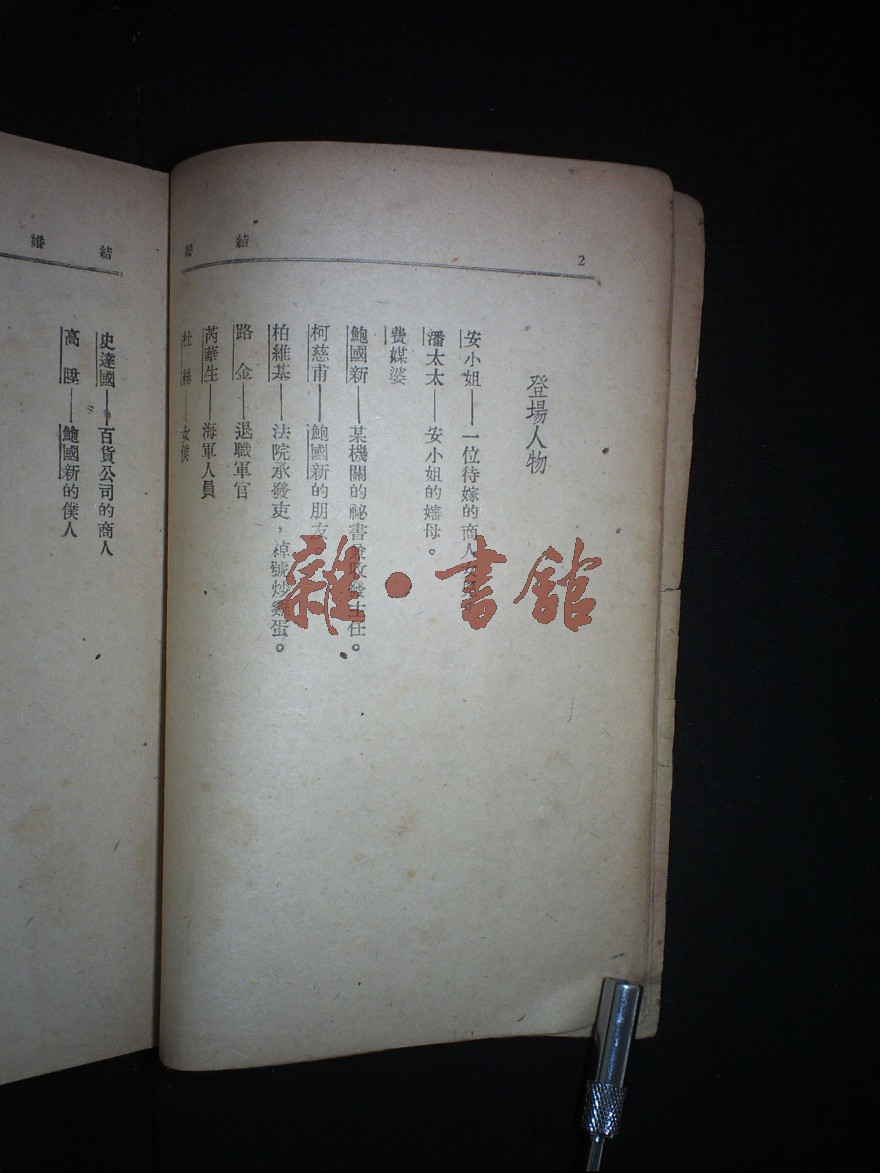 2
結婚
登場人物
安小姐——一位待嫁的商人
潘太太——安小姐的嬸母。
費媒婆
鮑國新——某機關的祕書兼收發主任。
柯慈甫——鮑國新的朋友。
柏維基——法院承發吏，禕號炒雞蛋。
路金——退職軍官
芮華生——海軍人員
杜絲——女僕
結婚
史達國——百貨公司的商人
高陞——鮑國新的僕人
雜·書館